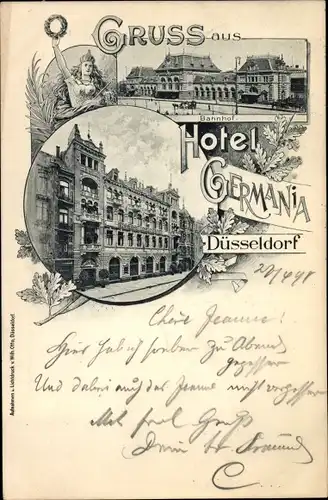 GRUSS aus
Bahnhof.
Hotel
GERMANIA
Düsseldorf
Chère Jeanne!
Hier hab ich soeben zu Abend
gegessen
Und dabei auch das Jeanne nicht vergessen
Mit frdl Gruß
Dein tr Freund
C...
Aufnahmen u. Lichtdruck v. Wilh. Otto, Düsseldorf.